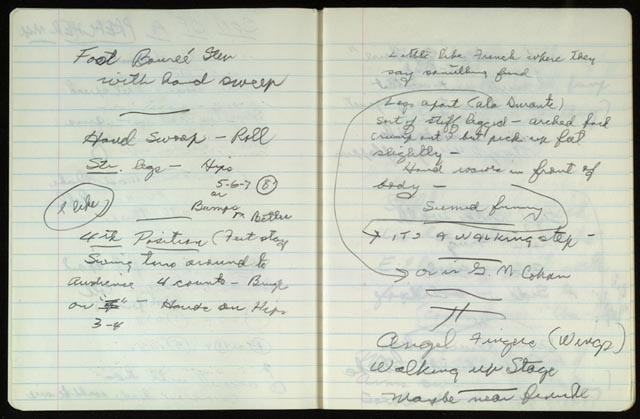 Foot Boureé Step
with hand sweep
Hand Sweep - Roll
Str. legs - Hips
5-6-7 (8)
or
I like
Bumps or Better
4th Position (Feet stay
Swing turn around to
Audience 4 counts - Bump
on - Hands on Hips
3-4
Little like French where they
say something
Legs apart (ala Durante)
sort of stiff legged - arched back
out ? but pick up feet
slightly -
Hand waves in front of
body -
Seemed funny
→ it's a walking step -
→ or is G. M Cohan
Angel Fingers (Wings)
Walking up Stage
Maybe near